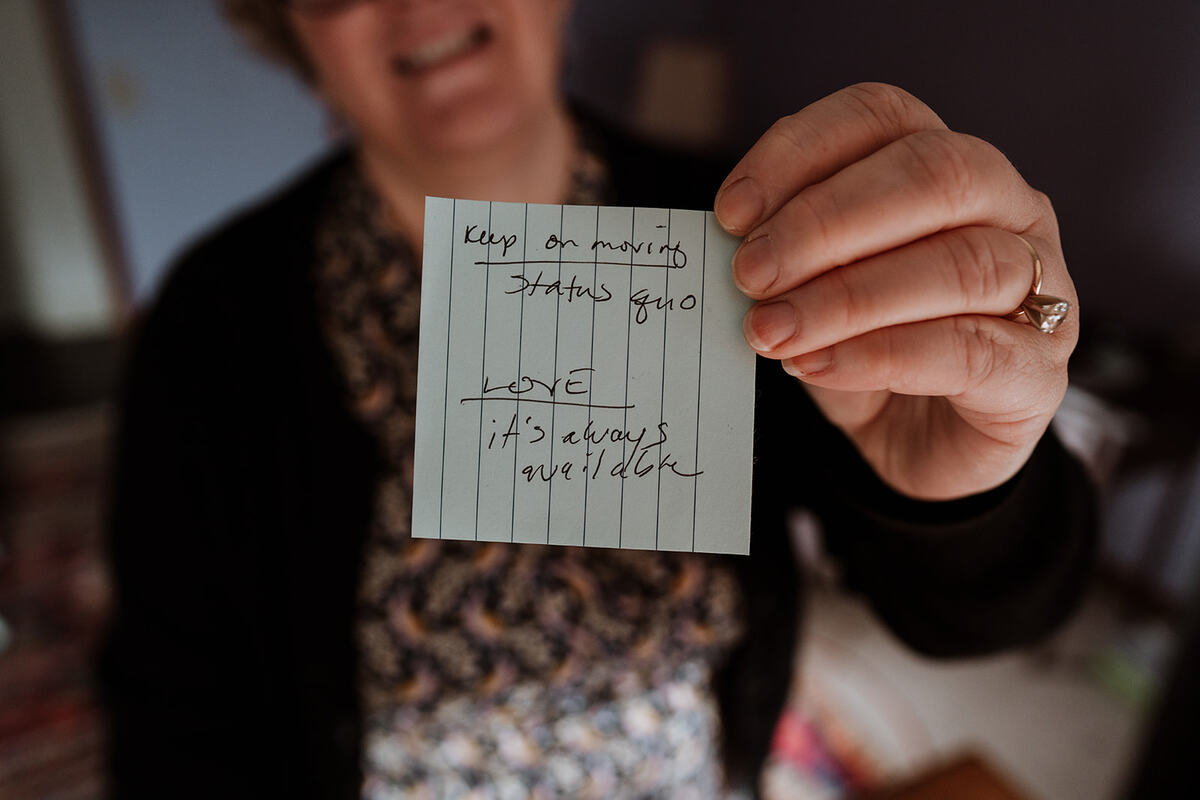 Keep on moving
Status quo
LOVE
it's always
available